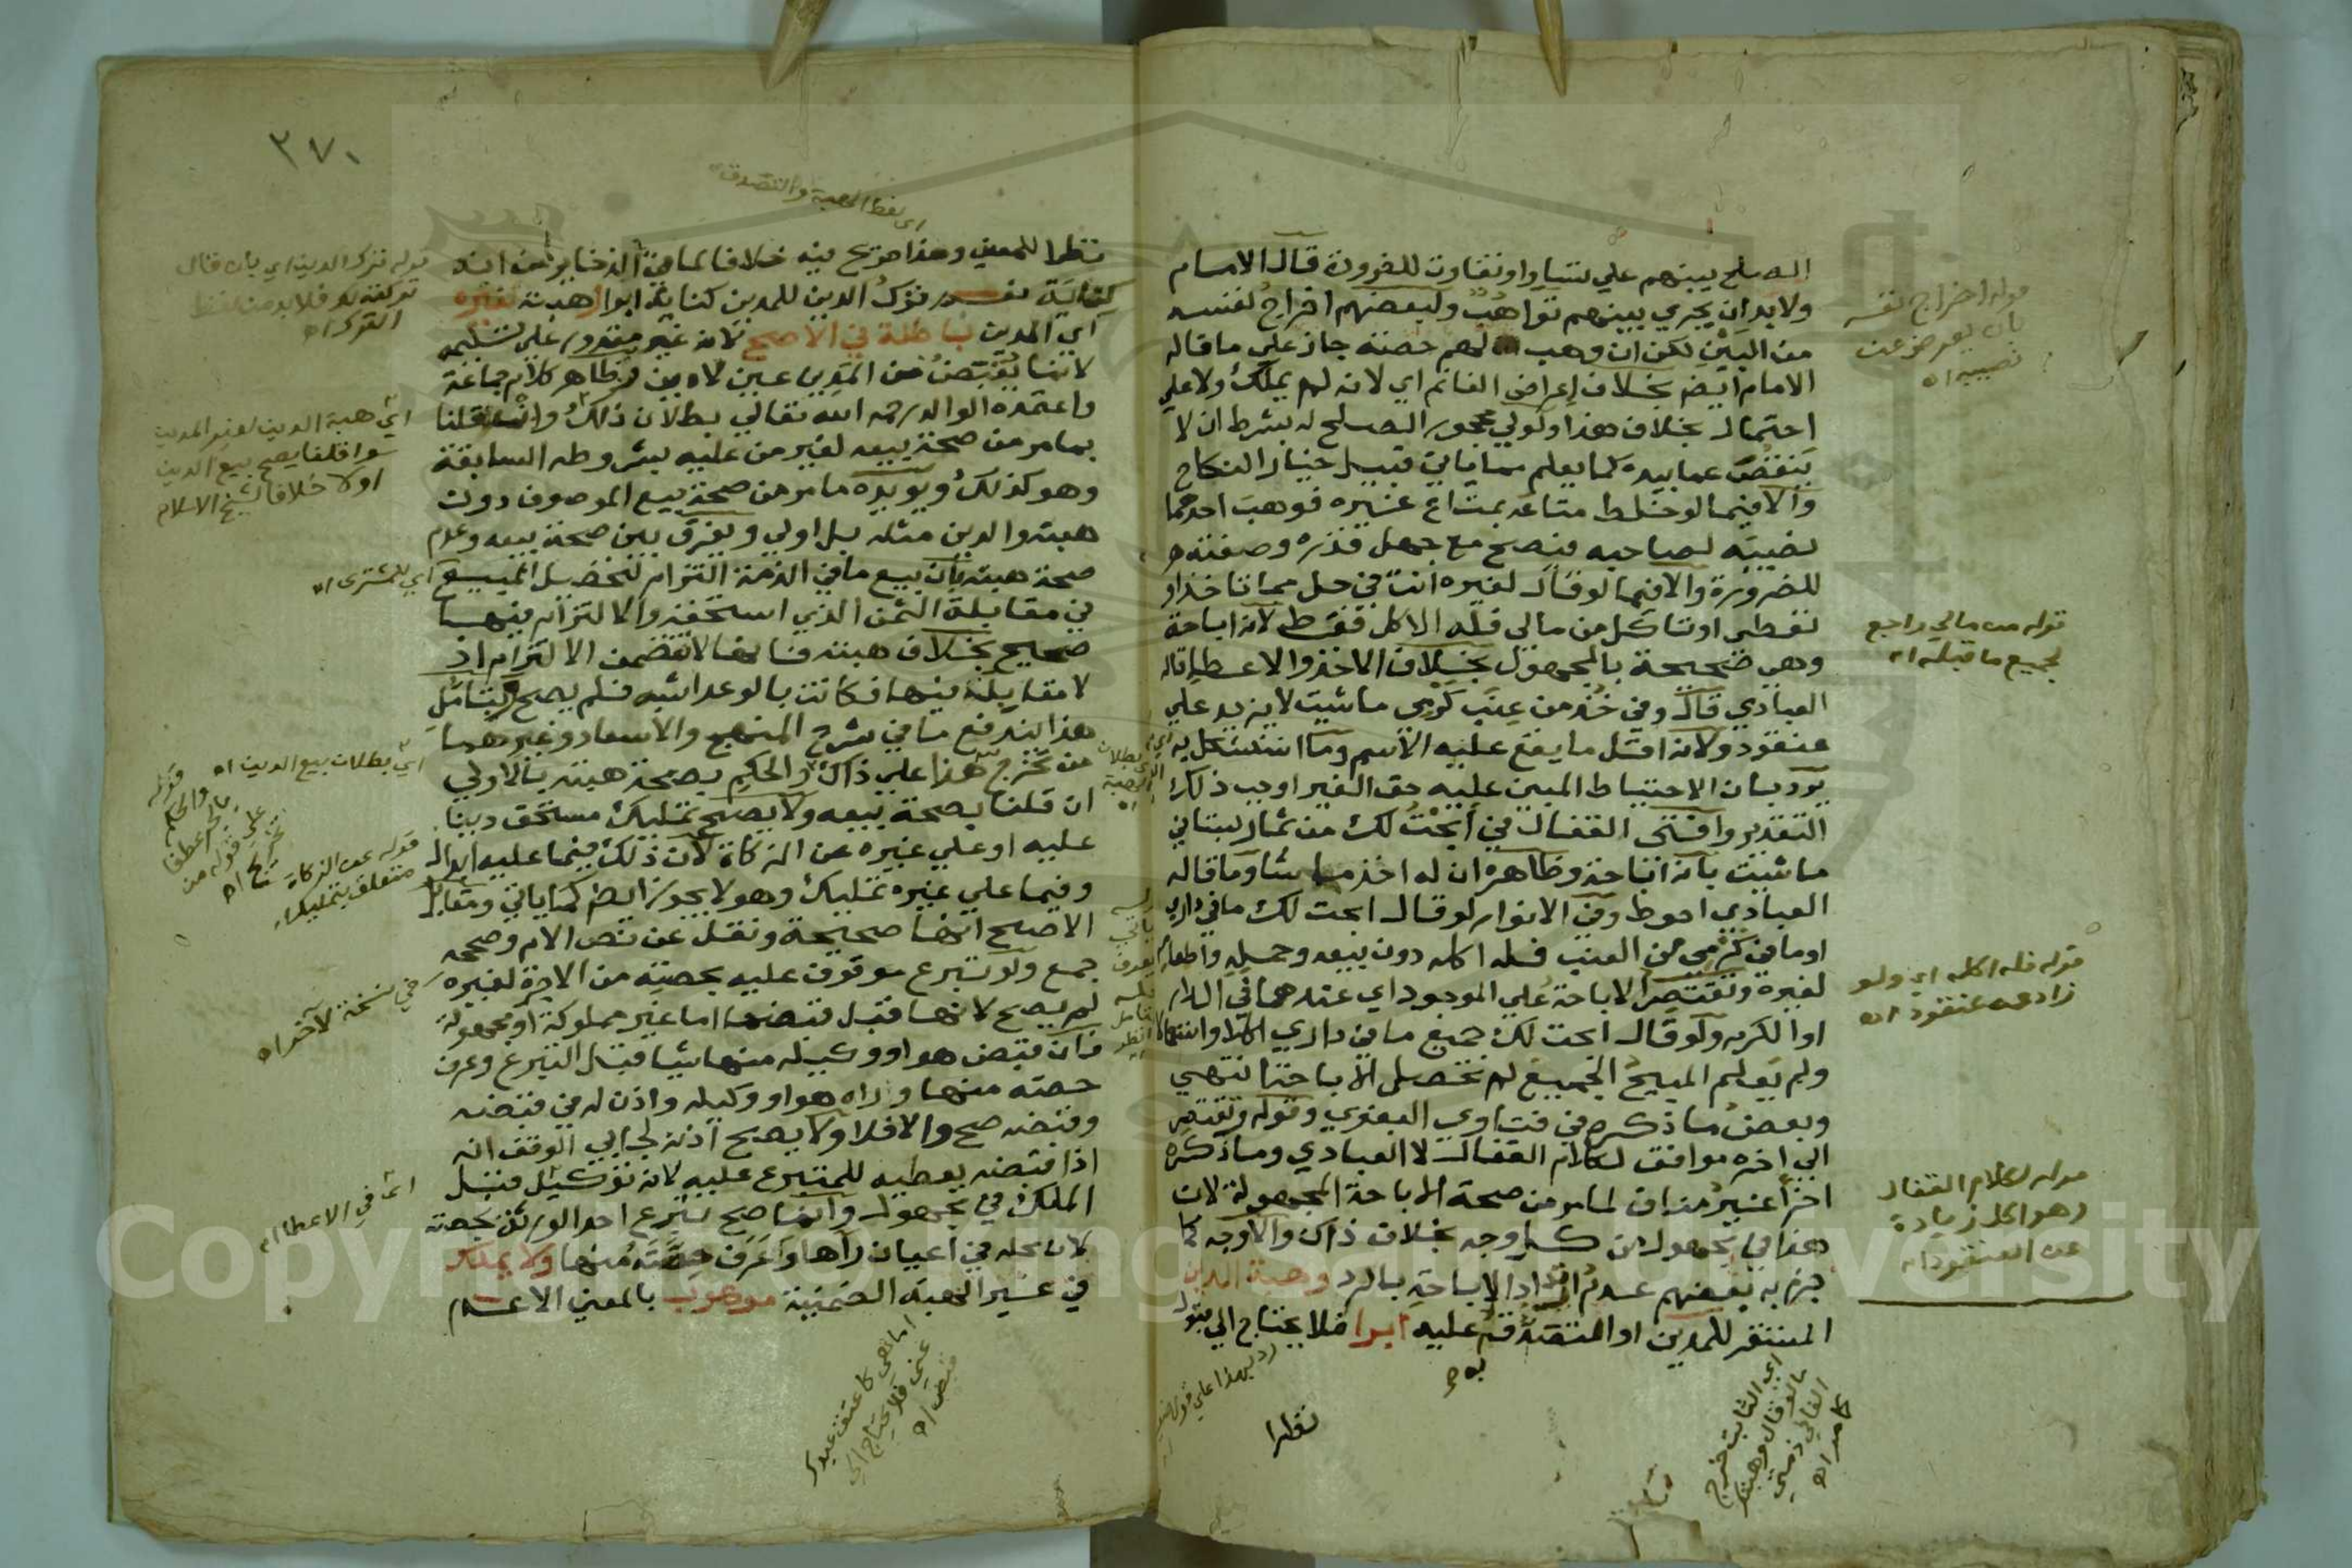 الصلح بينهم علي تساو او تفاوت للضرورة قال الامام
ولا بد ان يجري بينهم تواهب ولبعضهم اخراج نفسه
من البين لكن ان وهب لهم حصته جاز علي ما قاله
الامام ايضا بخلاف اعراض الغانم اي لانه لم يملك ولا علي
احتمال بخلاف هذا ولولي محجور الصلح له بشرط ان لا
ينقص عما بيده كما يعلم مما ياتي قبيل خيار النكاح
والا فيما لو خلط متاعه بمتاع غيره فوهب احدهما
نصيبه لصاحبه فيصح مع جهل قدره وصفته
للضرورة والا فيما لو قال لغيره انت في حل مما تاخذ او
تعطي او تاكل من مالي فله الاكل فقط لانه اباحة
وهي صحيحة بالمجهول بخلاف الاخذ والاعطا قاله
العبادي قال وفي خذ من عنب كرمي ما شيت لا يزيد علي
عنقود ولانه اقل ما يقع عليه الاسم وما استشكل به
يرد بان الاحتياط المبين عليه حق الغير اوجب ذلك
التقدير وافتى القفال في ابحت لك من ثمار بستاني
ما شيت بانه اباحة وظاهره ان له اخذ ما شا وما قاله
العبادي احوط وفي الانوار لو قال ابحت لك ما في داري
او ما في كرمي من العنب فله اكله دون بيعه وحمله واطعام
لغيره وتقتصر الاباحة علي الموجود اي عندهما في الدار
او الكرم ولو قال ابحت لك جميع ما في داري اكلا واستعمالا
ولم يعلم المبيح الجميع لم تحصل الاباحة انتهي
وبعض ما ذكره في فتاوي البغوي وقوله وتقتصر
الي اخره موافق لكلام القفال لا العبادي وما ذكره
اخرا غير مناف لما مر من صحة الاباحة المجهولة لان
هذا في مجهول من كل وجه بخلاف ذاك والاوجه كما
جزم به بعضهم عدم ارتداد الاباحة بالرد وهبة الدين
المستقر للمدين او التصدق به عليه ابرا فلا يحتاج الي قبول
قوله اخراج نفسه
بان يعرض عن
نصيبه اه
قوله من مالي راجع
لجميع ما قبله اه
قوله فله اكله اي ولو
زاد عن عنقود اه
قوله لكلام القفال
وهو اكل زيادة
عن العنقود اه
نظرا
٣٧٠
اي لفظ الهبة والتصدق
نظرا للمعني وهذا صريح فيه خلافا لما في الذخاير من انه
كناية نعم ترك الدين للمدين كناية ابرا وهبته لغيره
اي المدين باطلة في الاصح لانه غير مقدور علي تسليمه
لان ما يقبض من المدين عين لا دين وظاهر كلام جماعة
واعتمده الوالد رحمه الله تعالي بطلان ذلك وان قلنا
بما مر من صحة بيعه لغير من عليه بشروطه السابقة
وهو كذلك ويويده ما مر من صحة بيع الموصوف دون
هبته والدين مثله بل اولي ويفرق بين صحة بيعه وعدم
صحة هبته بان بيع ما في الذمة التزام لتحصيل المبيع
في مقابلة الثمن الذي استحقه والالتزام فيها
صحيح بخلاف هبته فانها لا تتضمن الالتزام اذ
لا مقابلة فيها فكانت بالوعد اشبه فلم يصح وبتامل
هذا يندفع ما في شرح المنهج والاسعاد وغيرهما
من تخريج هذا علي ذاك والحكم بصحة هبته بالاولي
ان قلنا بصحة بيعه ولا يصح تمليك مستحق دينا
عليه او علي غيره عن الزكاة لان ذلك فيما عليه ابدال
وفيما علي غيره تمليك وهو لا يجوز ايضا كما ياتي ومقابل
الاصح انها صحيحة ونقل عن نص الام وصححه
جمع ولو تبرع موقوف عليه بحصته من الاجرة لغيره
لم يصح لانها قبل قبضها اما غير مملوكة او مجهولة
فان قبض هو او وكيله منها شيا قبل التبرع وعرف
حصته منها وراه هو او وكيله واذن له في قبضه
وقبضه صح والا فلا ولا يصح اذنه لجابي الوقف انه
اذا قبضه يعطيه للمتبرع عليه لانه توكيل قبل
الملك في مجهول وانما صح تبرع احد الورثة بحصته
لان محله في اعيان رآها وعرف حصته منها ولا يملك
في غير الهبة الضمنية موهوب بالمعني الاعم
قوله ترك الدين اي بان قال
تركته لك فلا بد من لفظ
الترك اه
اي هبة الدين لغير المدين
سوا قلنا يصح بيع الدين
او لا خلافا لشيخ الاسلام
اي للمشتري اه
اي بطلان بيع الدين اه
قوله والحكم
بالجر عطفا
علي قوله من
تخريج اه
قوله عن الزكاة
متعلق بتمليك اه
في نسخة لآخر اه
اي في الاعطا اه
اما هي كاعتق عبدك
عني فلا يحتاج الي
قبض اه